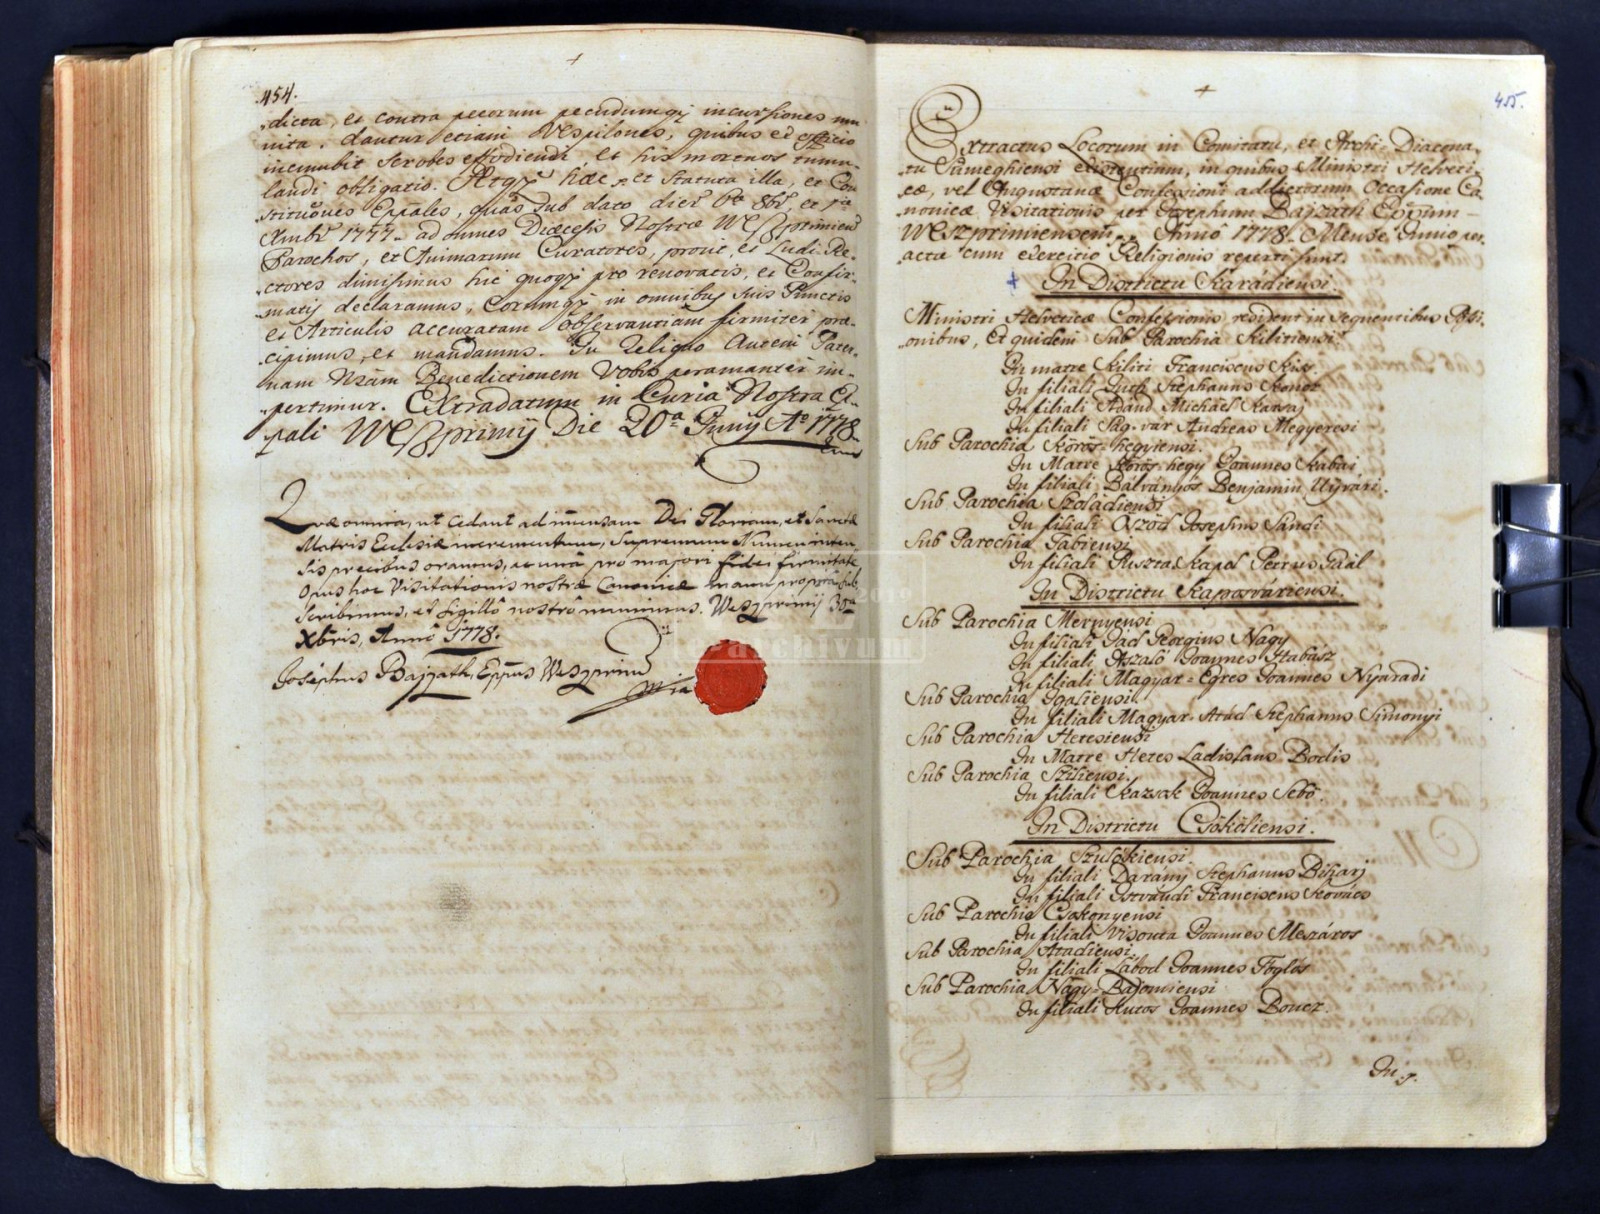 454.
dicta, et contra pecorum pecudumq̃ incursiones mu-
nita. dantur etiam Vespilones, quibus ex officio
incumbit scrobes effodiendi, et his mortuos tumu-
landi obligatio. Atq̃ hæc, et Statuta illa, et Con
stitũones Epp̃ales, quas sub dato diei 6ta 8bris et 1a
Xmbr 1777. ad omnes Diœcesis Nostræ Weszprimien
Parochos, et Animarum Curatores, prout, et Ludi-Re-
ctores dimisimus hic quoq̃ pro renovatis, et Confir-
matis declaramus, eorumq̃ in omnibus suis Punctis
et Articulis accuratam observantiam firmiter præ-
cipimus, et mandamus. In reliquo Autem Pater-
nam Nr̃am Benedictionem Vobis peramanter im-
pertimur. Extradatum in Curia Nostra E-
pp̃ali Weszprimij Die 20a Junij Ao 1778
Quæ omnia, ut cedant ad immensam Dei Gloriam, et Sanctæ
Matris Eclesiæ incrementum, Supremum Numen inten
sis precibus oramus, ac unà pro majori fidei firmitate
Opus hoc Visitationis nostræ Canonicæ manu propria sub
scribimus, et sigillô nostrô munimus. Weszprimij 30a
Xbris, Annô 1778.
Josephus Bajzath, Epp̃us Weszprim
mpia
455.
Extractus Locorum in Comitatu, et Archi-Diacona-
tu Sümeghiensi existentium, in quibus Ministri Helveti-
cæ, vel Augustanæ Confessioni addictorum Occasione Ca-
nonicæ Visitationis per Josephum Bajzáth Epp̃um
Weszprimiensem Annô 1778. Mense Junio per-
actæ cum exercitio Religionis reperti sunt.
In Districtu Karádiensi.
Ministri Helveticæ Confessionis resident in sequentibus Posi-
onibus, Et quidem Sub Parochia Kilitiensi
In matre Kiliti Franciscus Kis
In filiali Juth Stephanus
In filiali Ádánd Michael Karvaj
In filiali Ság-vár Andreas Megyeresi
Sub Parochia Körös-hegyiensi.
In Matre Körös-hegy Joannes Kabai
In filiali Bálványos Benjamin Ujvári.
Sub Parochia Szoládiensi
In filiali Öszöd Josephus Sándi
Sub Parochia Tabiensi
In filiali Puszta Kapol Petrus Gaál
In Districtu Kaposváriensi.
Sub Parochia Mernyensi
In filiali Jád Georgius Nagy
In filiali Aszaló Joannes Szabász
In filiali Magyar-Egres Joannes Nyaradi
Sub Parochia Igaliensi
In filiali Magyar-Atád Stephanus Simonyi
Sub Parochia Hetesiensi
In Matre Hetes Ladislaus Bodis
Sub Parochia Sziliensi.
In filiali Kazsok Joannes Sebö.
In Districtu Csököliensi.
Sub Parochia Szulokiensi
In filiali Darány Stephanus Bihari
In filiali Istvándi Franciscus Kovács
Sub Parochia Csokonyensi
In filiali Visonta Joannes Meszáros
Sub Parochia Atadiensi
In filiali Lábod Joannes Foglós
Sub Parochia Nagy-Bajomiensi
In filiali Kutas Joannes Boncz
In
2019
archivum